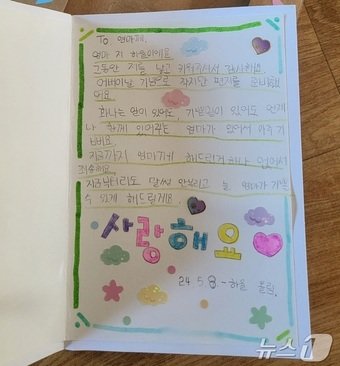 To 엄마께.
엄마 저 하율이에요
그동안 저를 낳고 키워주셔서 감사해요
어버이날 기념으로 작지만 편지를 준비했
어요
화나는 일이 있어도, 기쁜일이 있어도 언제
나 함께 있어주는 엄마가 있어서 아주 기
뻐요.
지금까지 엄마께 해드린게 하나 없어서
죄송해요.
지금부터라도 말썽 안부리고 늘 엄마가 기쁠
수 있게 해드릴게요.
사랑해요
24.5.8 -하율 올림.
뉴스1